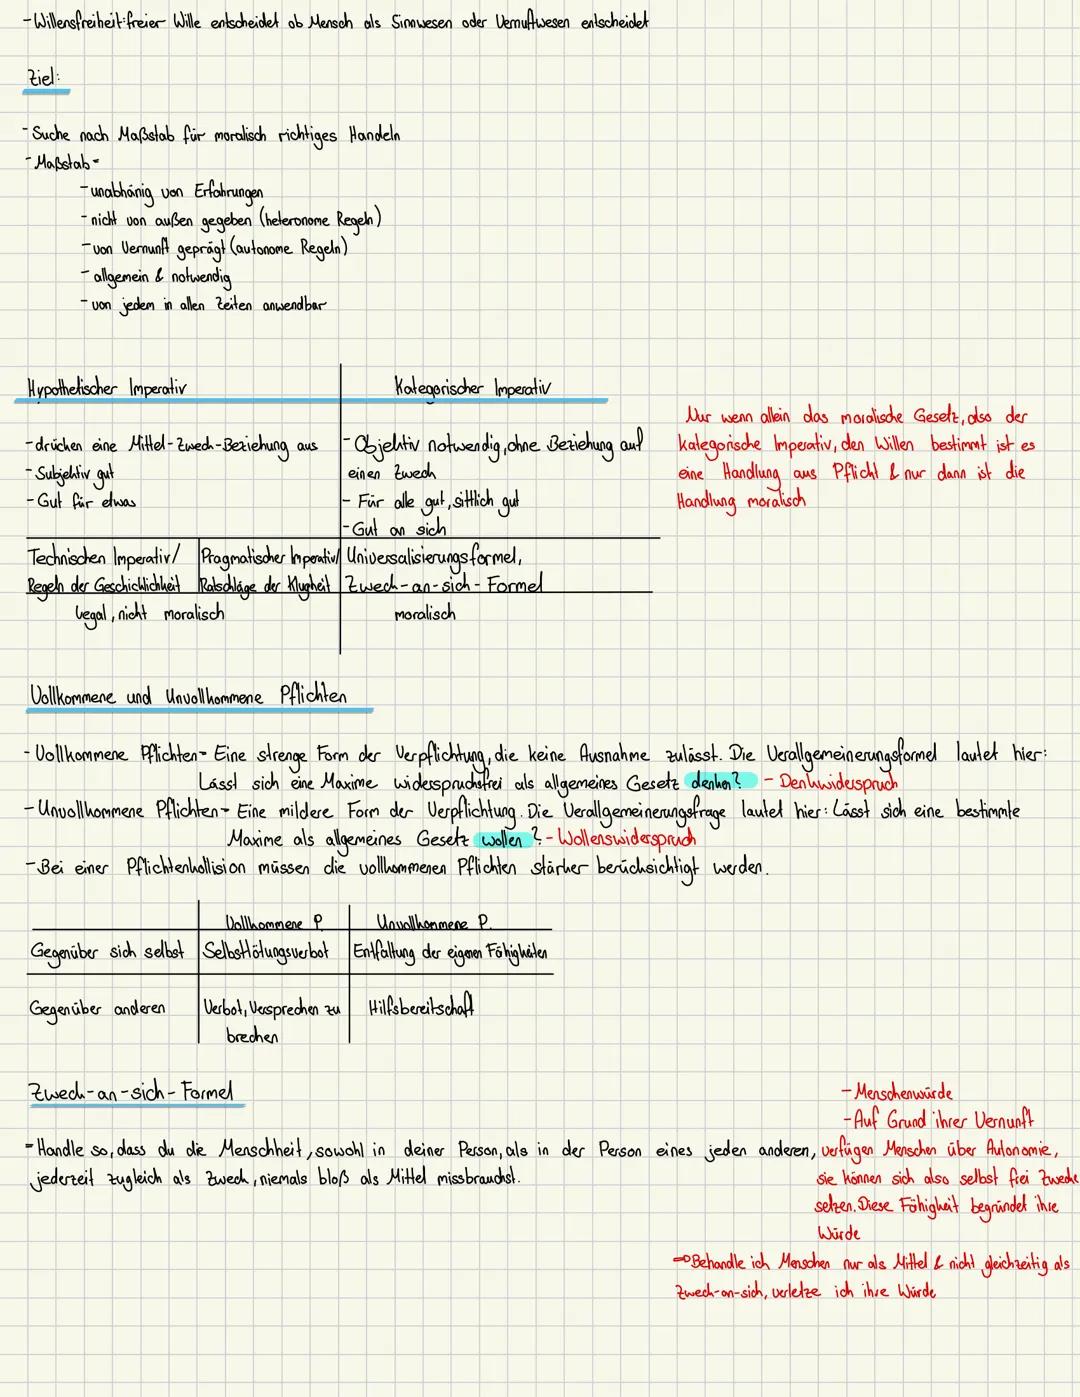 - Willensfreiheit: freier Wille entscheidet ob Mensch als Sinnwesen oder Vernuftwesen entscheidet
Ziel:
- Suche nach Maßstab für moralisch richtiges Handeln
- Maßstab =
- unabhänig von Erfahrungen
- nicht von außen gegeben (heteronome Regeln)
- von Vernunft geprägt (autonome Regeln)
- allgemein & notwendig
- von jedem in allen Zeiten anwendbar
Hypothetischer Imperativ
- drücken eine Mittel-Zweck-Beziehung aus
- Subjektiv gut
- Gut für etwas
Kategorischer Imperativ
- Objektiv notwendig, ohne Beziehung auf
einen Zweck
- Für alle gut, sittlich gut
- Gut an sich
Nur wenn allein das moralische Gesetz, also der
kategorische Imperativ, den Willen bestimmt ist es
eine Handlung aus Pflicht & nur dann ist die
Handlung moralisch
Technischen Imperativ/
Regeln der Geschicklichkeit
Pragmatischer Imperativ/
Ratschläge der Klugheit
Universalisierungsformel,
Zweck-an-sich-Formel
Legal, nicht moralisch
moralisch
Vollkommene und Unvollkommene Pflichten
- Vollkommene Pflichten = Eine strenge Form der Verpflichtung, die keine Ausnahme zulässt. Die Verallgemeinerungsformel lautet hier:
Lässt sich eine Maxime widerspruchsfrei als allgemeines Gesetz denken? - Denkwiderspruch
- Unvollkommene Pflichten = Eine mildere Form der Verpflichtung. Die Verallgemeinerungsfrage lautet hier: Lässt sich eine bestimmte
Maxime als allgemeines Gesetz wollen? - Wollenswiderspruch
- Bei einer Pflichtenkollision müssen die vollkommenen Pflichten stärker berücksichtigt werden.
Vollkommene P. Unvollkommene P.
Gegenüber sich selbst Selbsttötungsverbot Entfaltung der eigenen Fähigkeiten
Gegenüber anderen Verbot, Versprechen zu Hilfsbereitschaft
brechen
Zweck-an-sich-Formel
- Handle so, dass du die Menschheit, sowohl in deiner Person, als in der Person eines jeden anderen,
jederzeit zugleich als Zweck, niemals bloß als Mittel missbrauchst.
- Menschenwürde
- Auf Grund ihrer Vernunft
verfügen Menschen über Autonomie,
sie können sich also selbst frei Zwecke
setzen. Diese Fähigkeit begründet ihre
Würde
⇒ Behandle ich Menschen nur als Mittel & nicht gleichzeitig als
Zweck-an-sich, verletze ich ihre Würde